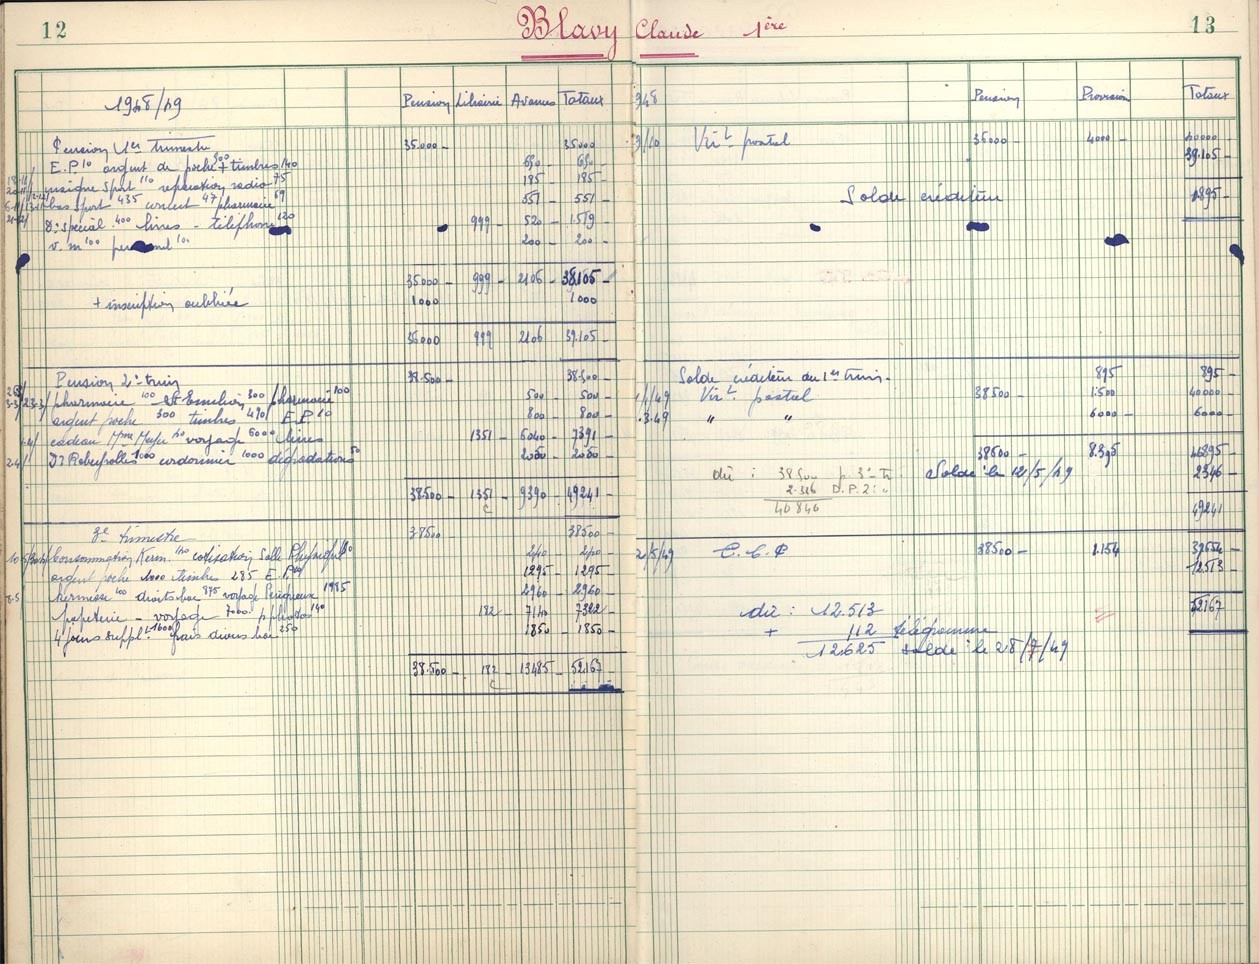 12
Blavy Claude 1ère
13
1948/49 Pension Librairie Avances Totaux
Pension 1er trimestre 35.000 - 35.000
E.P. 10 argent de poche 500 + timbres 140 650 - 650 -
insigne sport 110 réparation radio 75 185 - 185 -
bas sport 435 concert 47 pharmacie 69 551 551 -
Dr spécial. 400 livres - téléphone 120 999 - 520 - 1519 -
v. m 100 100 200 - 200 -
35000 - 999 - 2106 - 38.105 -
+ inscription oubliée 1000 1000
36000 999 2106 39.105 -
Pension 2e trim 38.500 - 38.500 -
pharmacie 100 St Emilion 300 pharmacie 100 500 - 500 -
argent poche 300 timbres 490 E.P. 10 800 - 800 -
cadeau voyage 6000 livres 1351 - 6040 - 7391 -
Dr Rebeyrolles 1000 cordonnier 1000 dégradations 50 2050 - 2050 -
38.500 - 1351 - 9390 - 49241 -
3e trimestre 38500 38500 -
consommation Kerm. cotisation Salle 240 - 240 -
argent poche 1000 timbres 285 E.P. 10 1295 - 1295 -
kermesse 100 droits bac 875 voyage Périgueux 1985 2960 - 2960 -
papeterie - voyage 7000 photos 140 182 - 7140 - 7322 -
4 jours suppl. 1600 frais divers bac 250 1850 - 1850 -
38.500 - 182 - 13485 - 52.167 -
948 Pension Provision Totaux
3/10 Virt postal 36000 - 4000 - 40000 -
39.105 -
Solde créditeur 895 -
Solde créditeur du 1er trim. 895 895 -
1/1/49 Virt postal 38500 - 1.500 40000 -
.3.49 " " 6000 - 6000 -
38500 - 8.395 46895
dû : 38500 p. 3e tr. Solde le 12/5/49 2346 -
2.346 D.P. 2e
40846 49241
2/5/49 C.C.P 38500 - 1.154 39654 -
12513 -
52167
dû : 12.513
+ 112 télégramme
12.625 soldé le 28/7/49